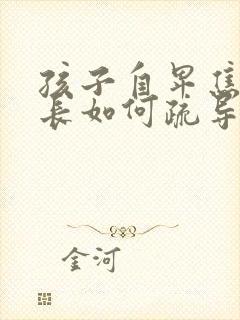 孩子自卑焦
长如何疏导
金河